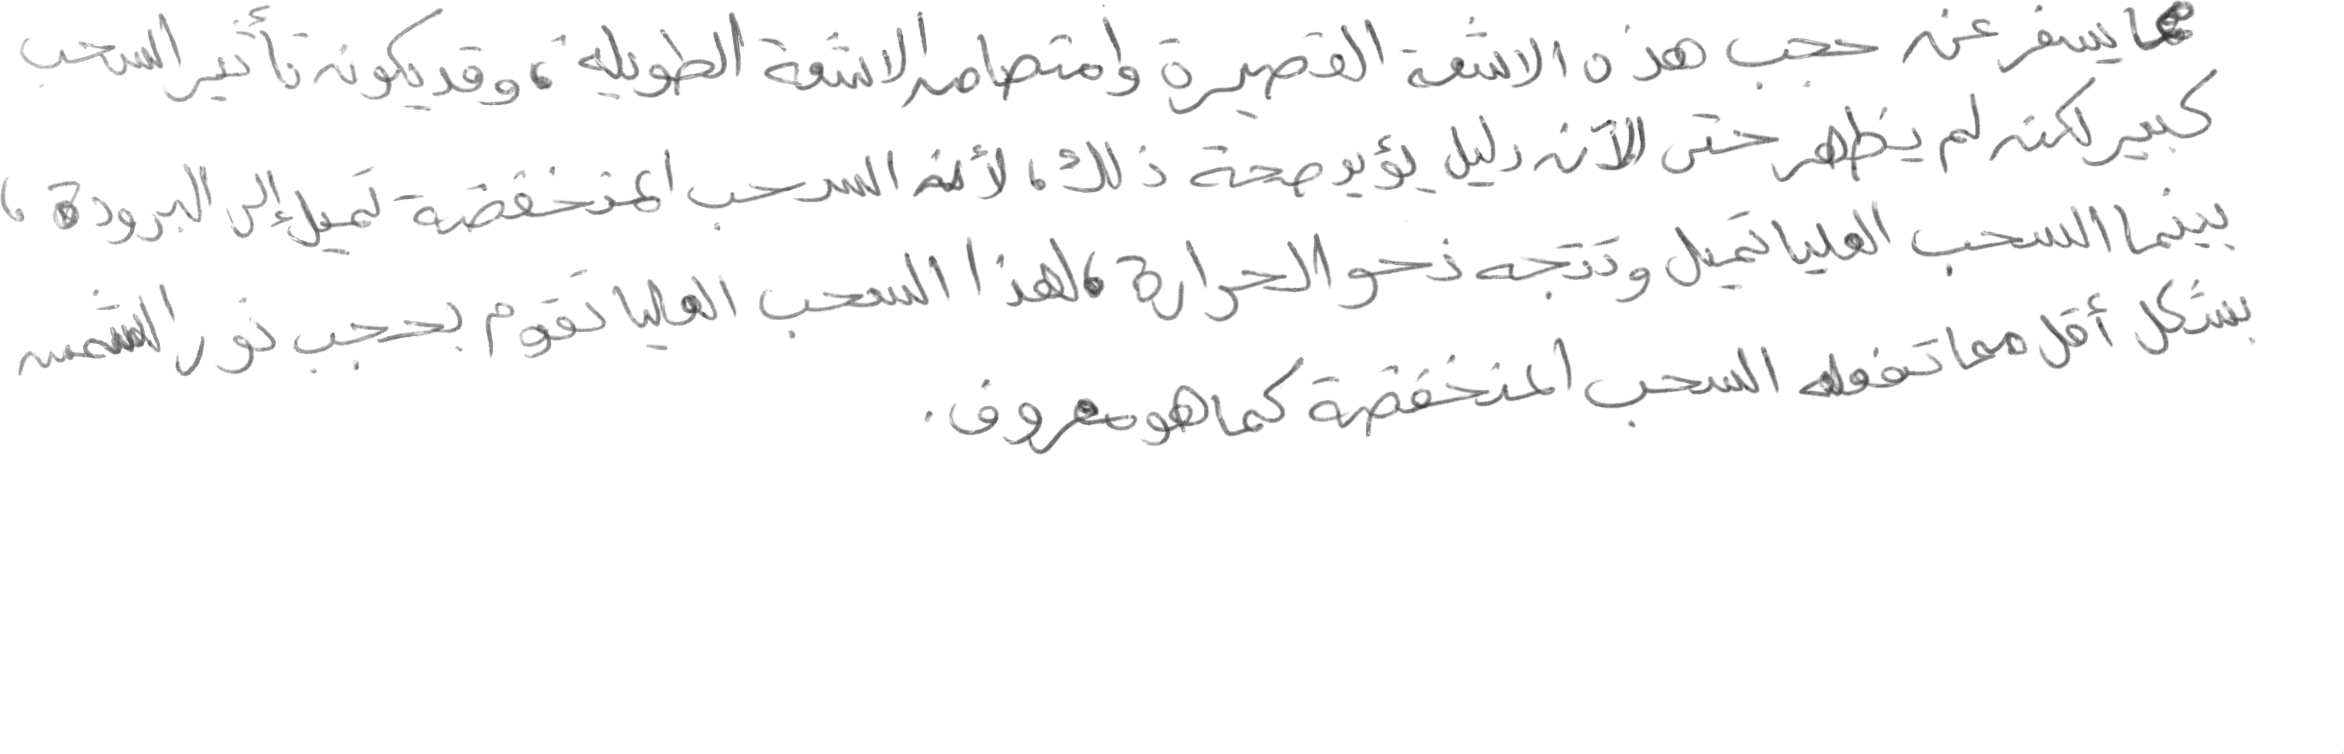 مما يسفر عن حجب هذه الاشعة القصيرة وامتصاص الاشعة الطويلة ، وقد يكون تأثير السحب
كبير لكن لم يظهر حتى الآن دليل يؤيد صحة ذلك ، لأن السحب المنخفضة تميل إلى البرودة ،
بينما السحب العليا تميل وتتجه نحو الحرارة ، لهذا السحب العليا تقوم بحجب نور الشمس
بشكل أقل مما تفعله السحب المنخفضة كما هو معروف .